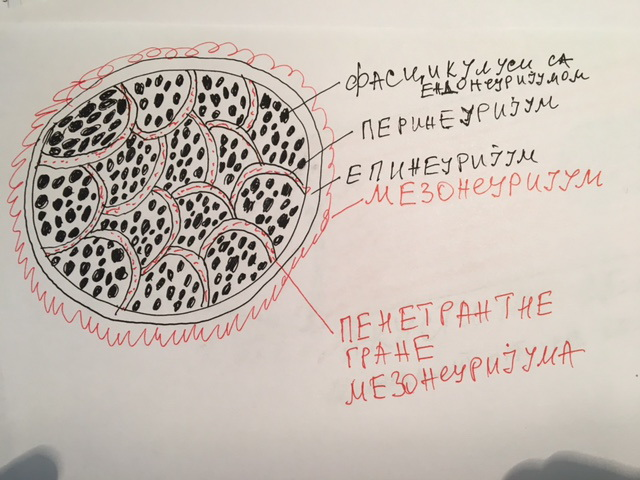 ФАСЦИКУЛУСИ СА
ЕНДОНЕУРИЈУМОМ
ПЕРИНЕУРИЈУМ
ЕПИНЕУРИЈУМ
МЕЗОНЕУРИЈУМ
ПЕНЕТРАНТНЕ
ГРАНЕ
МЕЗОНЕУРИЈУМА